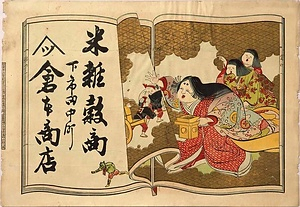 米雜穀商
下市田中町
倉本商店